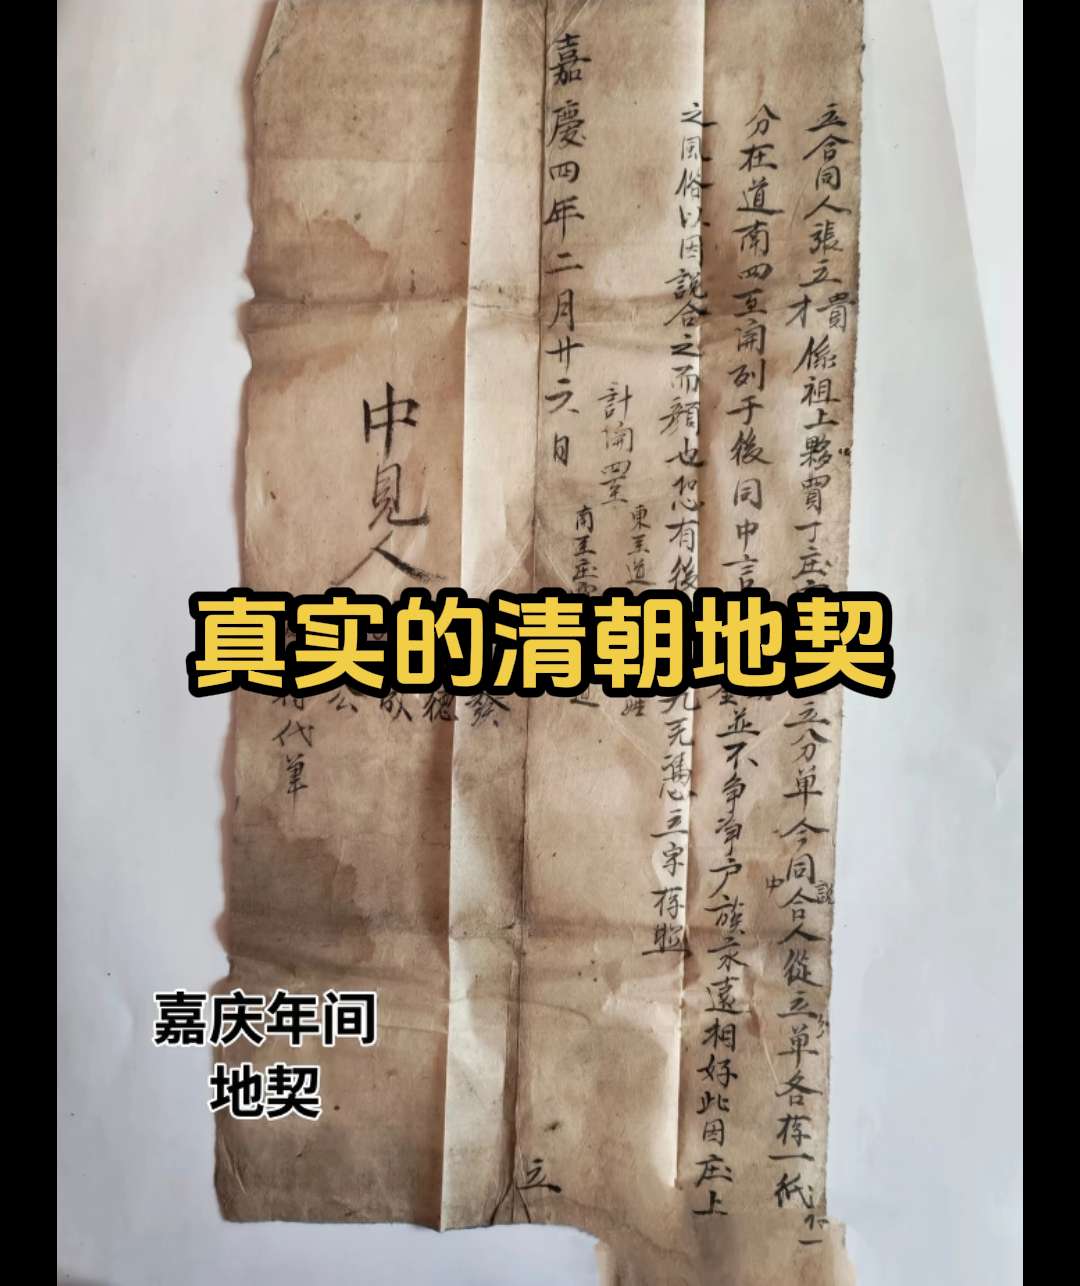 立合同人張立貴才係祖上夥買丁庄
立分单今同合人從立单各存一紙
分在道南四至開列于後同中言
並不争凈户族永遠相好此因庄上
之風俗以因説合之而顏也恐有後
无憑立字存照
計開四至
東至道
南至庄
嘉慶四年二月廿六日
立
中見人
發
德
成
公
代筆
真实的清朝地契
嘉庆年间
地契